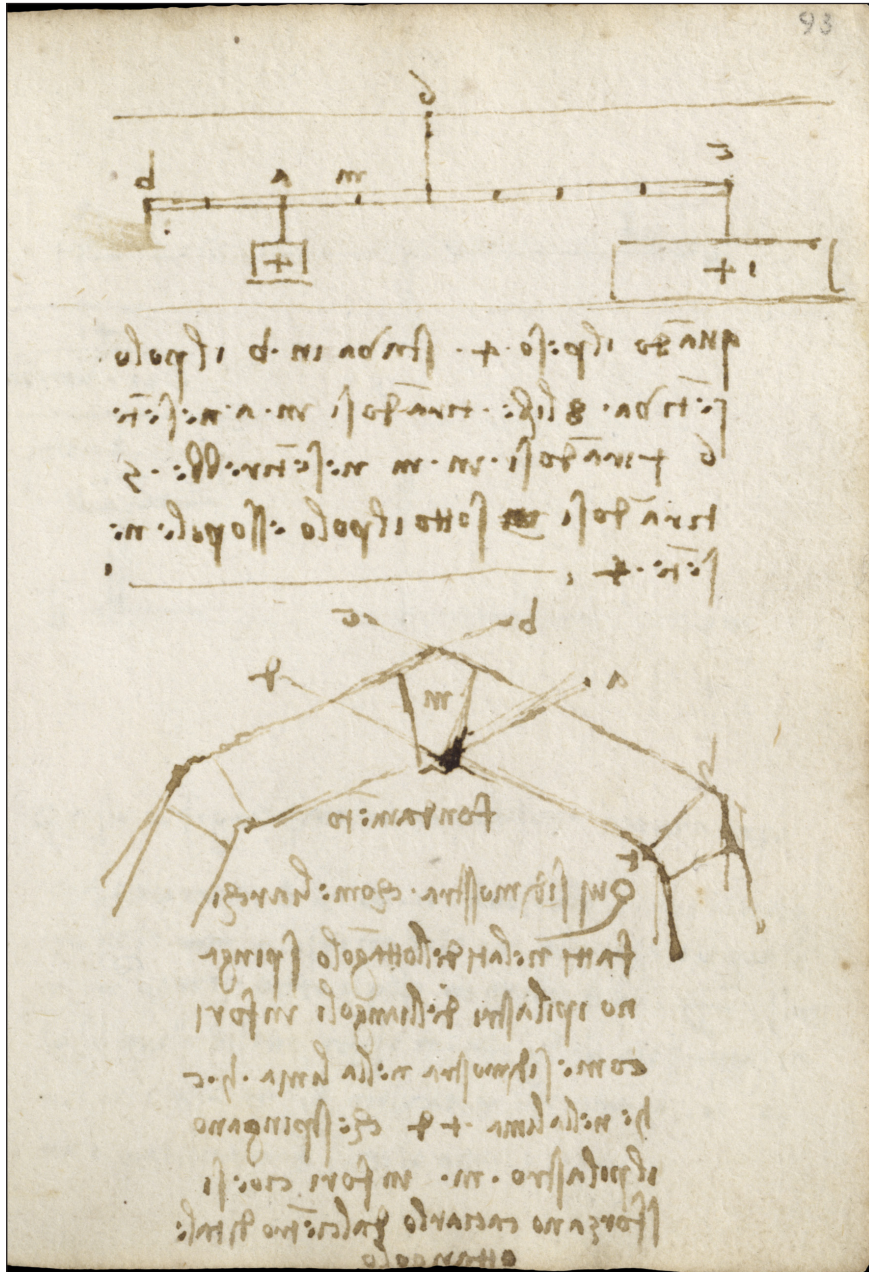 93
c m a b
4
quādo il peso . 4 . si tira in . b . il polo
sēte da . 8 . tirādosi in . a . ne sēte
6 tirādosi . in . m ne sētirebbe . 5
tirādosi sotto il polo esso polo ne
sēte . 4 .
b c
a m d
h
fondamēto
t
Qui si dimosstra . chome li archi
fatti ne lati dell ottāgolo spinga
no i pilastri delli angoli in fori
come si dimosstra nella linia . h . c
he nella linia . t d che spingano
il pilastro . m . in fori cioè si
sforzano cacciarlo dal ciētro di tale
ottangolo